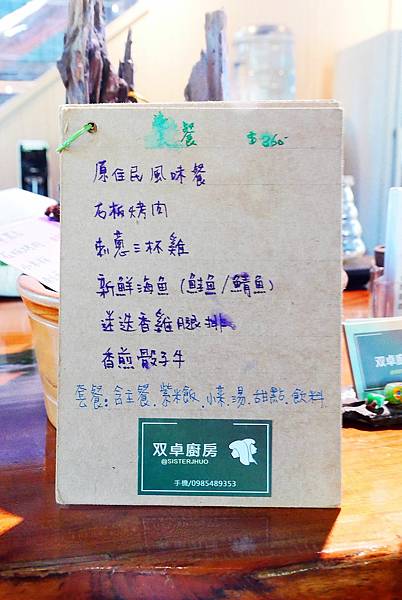 套餐 $360
原住民風味餐
石板烤肉
刺蔥三杯雞
新鮮海魚（鮭魚/鯖魚）
迷迭香雞腿排
香煎骰子牛
套餐：含主餐.紫米飯.小菜.湯.甜點.飲料
双卓廚房
@SISTERJHUO
手機/0985489353
双卓廚